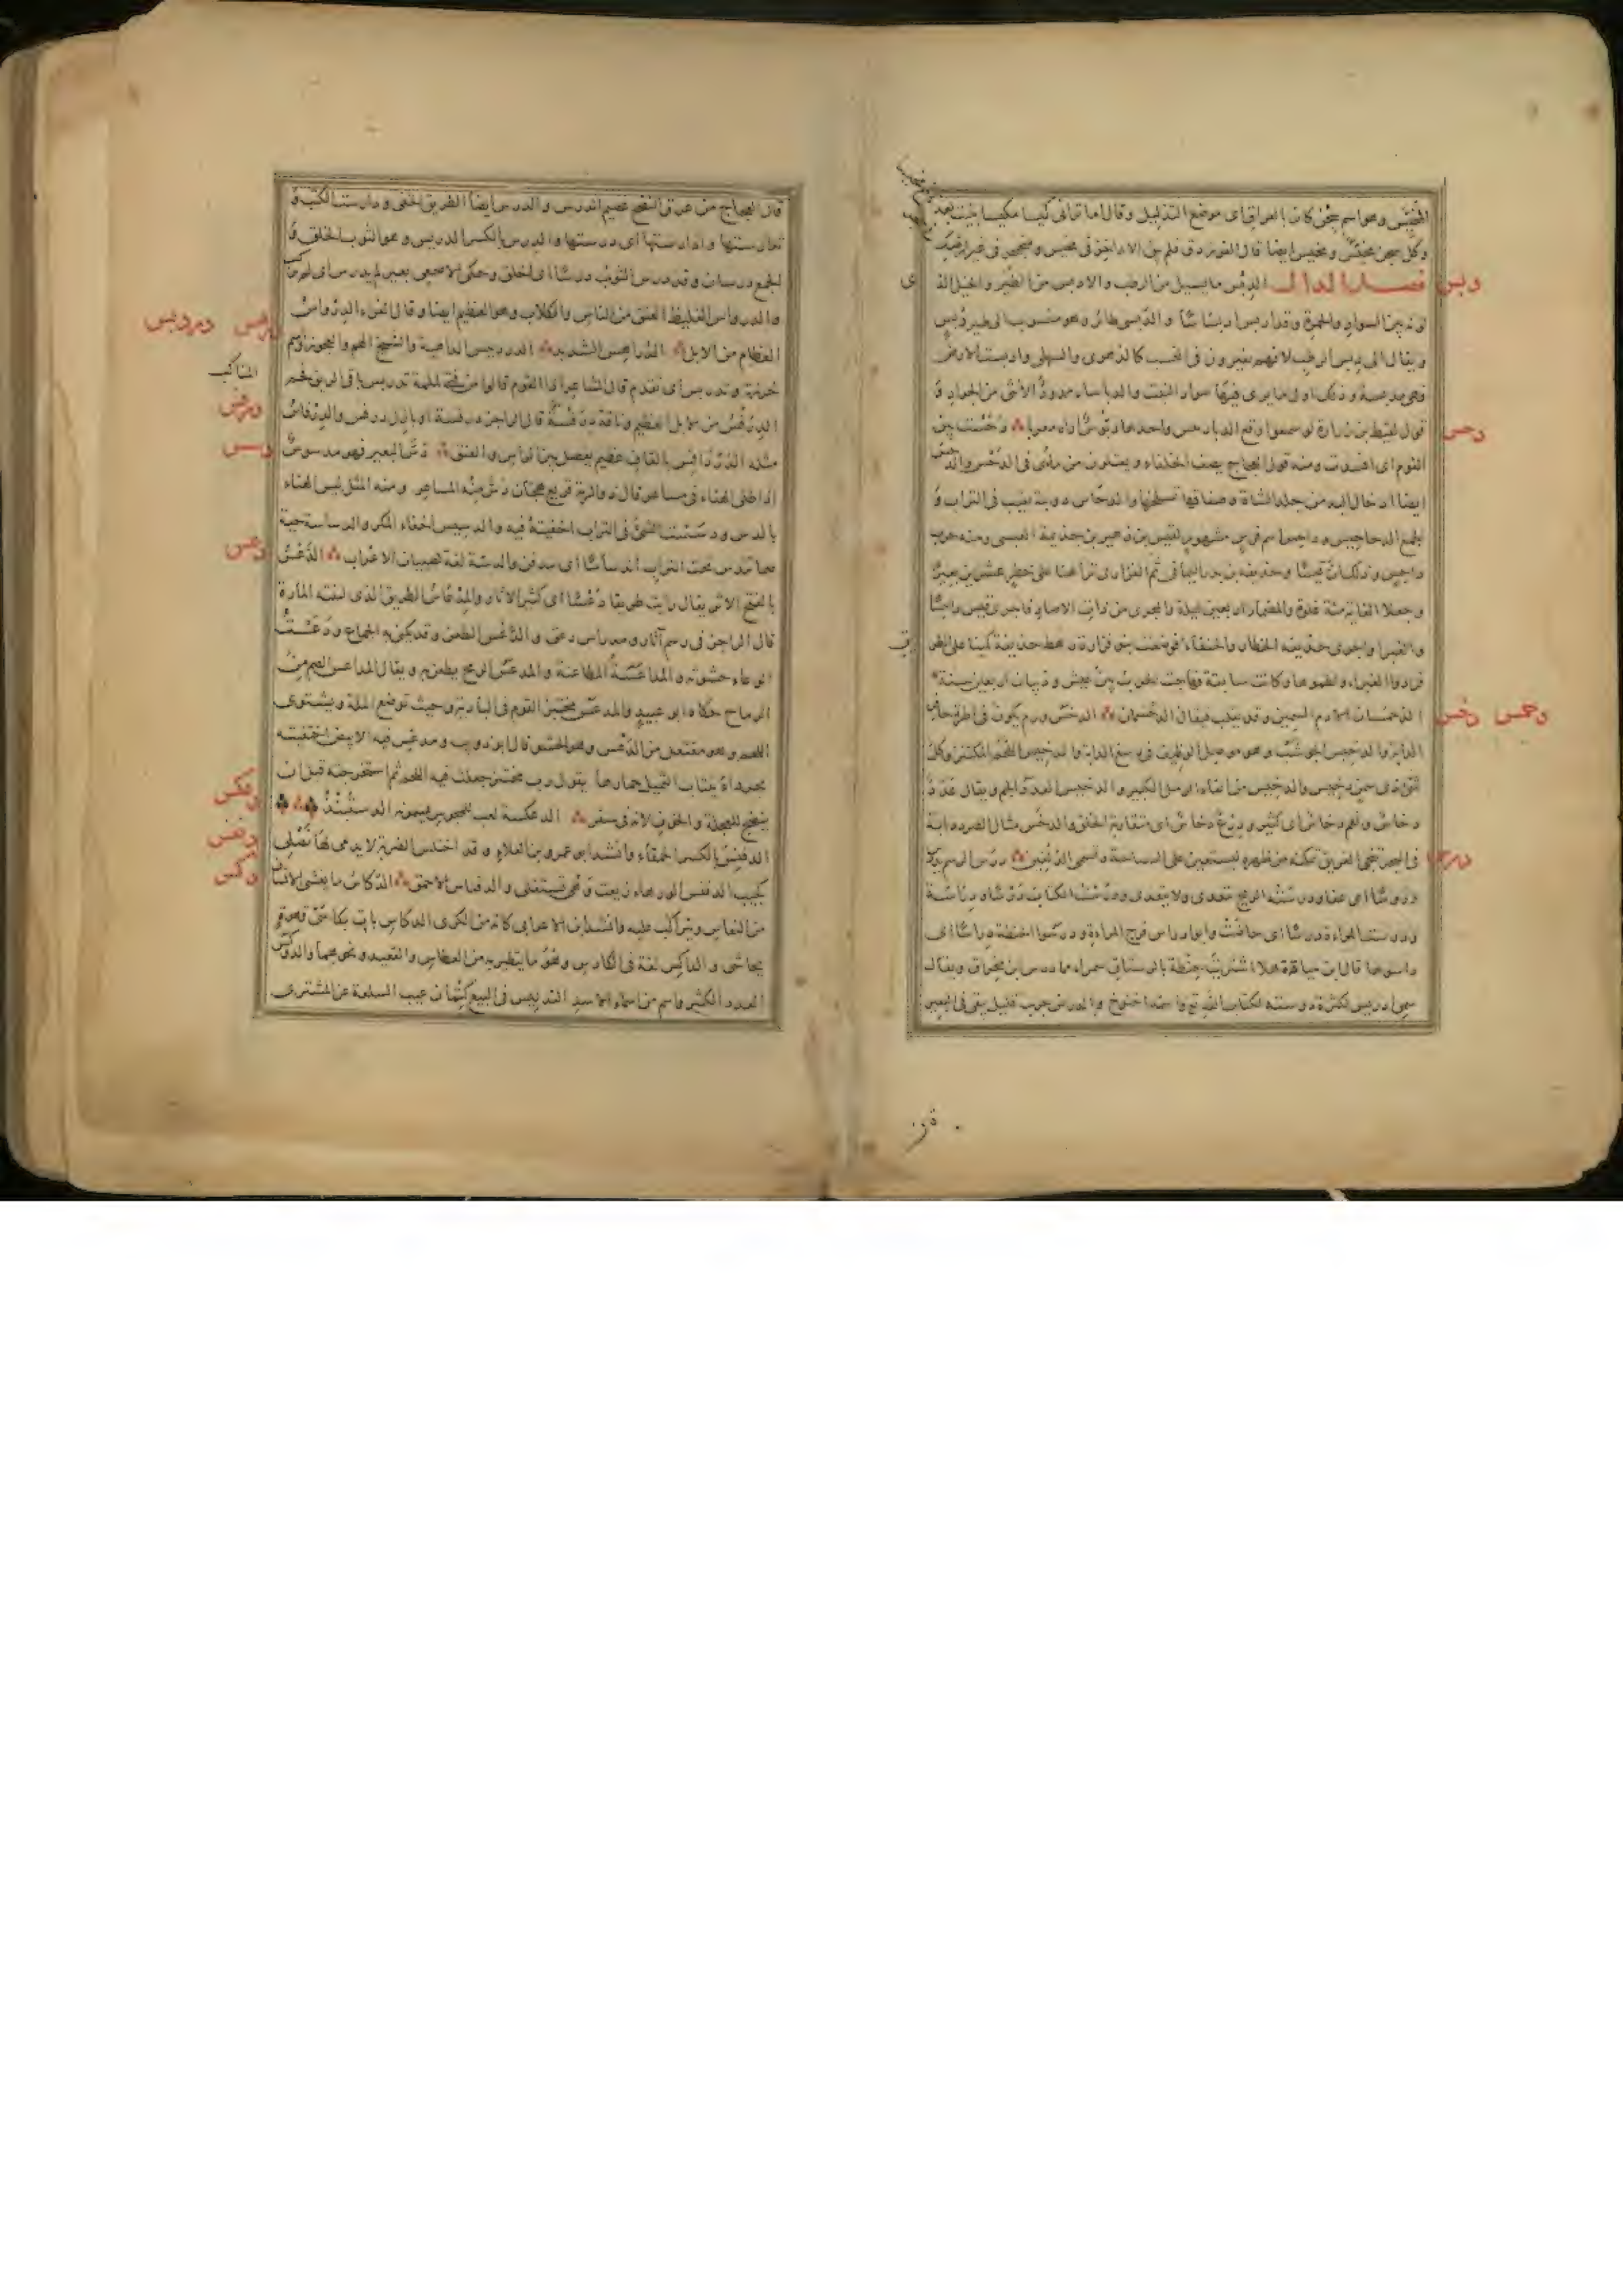 المخيّس وهو اسم سجن كان بالعراق اى موضع التذليل وقال اما ترانى كيسا مكيسا بنيت بعد
وكل سجن مخيّس ومخيس ايضا قال الفرزدق فلم يبق الا داخر فى مخيس ومنجحر فى غير ارضك
دبس
فصل الدال الدِبْس ما يسيل من الرطب والادبس من الطير والخيل الذ
ى
لونه بين السواد والحمرة وقد ادبس ادبساسًا والدّبسى طائر وهو منسوب الى طير دُبْس
ويقال الى دبس الرطب لانهم يغيرون فى النسب كالدهرى والسهلى وادبست الارض
فهى مدبسة وذلك اول ما يرى فيها سواد النبت والدباساء ممدودٌ الانثى من الجراد وَ
دحس
قول لقيط بن زرارة لو سمعوا وقع الدبابيس واحدها دبّوسٌ اراه معربا دَحَسْت بين
القوم اى افسدت ومنه قول العجاج يصف الخلفاء ويعتلون من مأى فى الدَحْس والدَحْس
ايضا ادخال اليد من جلد الشاة وصفاقها لسلخها والدحّاس دويبة تغيب فى التراب وَ
الجمع الدحاحيس وداحس اسم فرس مشهور لقيس بن زهير بن جذيمة العبسى ومنه حرب
داحس وذلك انّ قيسًا وحذيفة بن بدر الذبيانى ثم الفزارى تراهنا على خطر عشرين بعيرًا
وجعلا الغاية مئة غلوة والمضمار اربعين ليلة والمجرى من ذات الاصاد فاجرى قيس داحسًا
والغبرا واجرى حذيفة الخطار والحنفاء فوضعت بنو فزارة رهط حذيفة كمينا على الطر
يق
فردوا الغبراء ولطموها وكانت سابقة فهاجت الحرب بين عبس وذبيان اربعين سنة
دحمس دخس
الدُحْمُسان الآدم السمين وقد يقلب فيقال الدُحْسُمان الدَخَس ورم يكون فى اطرة حافر
الدابة والدخيس الحوشب وهو موصل الوظيف فى رسغ الدابة والدخيس اللحم المكتنز وكل
شىء ذى سمن دخيس والدخيس من انقاء الرمل الكثير والدخيس العدد الجم ويقال عَدَدٌ
دخاسٌ ونعم دخاسٌ اى كثير ودرعٌ دخاسٌ اى متقاربة الحلق والدخس مثال الصرد دابة
درس
فى البحر تنجى الغريق تمكنه من ظهرها ليستعين على السباحة وتسمى الدُلفين درس الرسم يدرُ
دروسًا اى عفا ودرسته الريح يتعدى ولا يتعدى ودرست الكتاب دَرْسًا ودِراسَة
ودرست المراءة دروسًا اى حاضت وابو ادراس فرج المراءة ودرسوا الحنطة دِراسًا اى
داسوها قال ابن ميادة هلا اشتريت حنطة بالرستاق سمراء مما درس ابن مخراق ويقال
سمى ادريس لكثرة دراسته لكتاب الله تع واسمه اخنوخ والدرس جرب قليل يبقى فى البعير
قال العجاج من عرق النضح عصيم الدرس والدرس ايضًا الطريق الخفى ودارست الكتب وَ
تدارستها وادّارستها اى درستها والدرس بالكسر الدريس وهو الثوب الخلق وَ
الجمع درسان وقد درس الثوب درسًا اى اخلق وحكى الاصمعى بعير لم يدرس اى لم يركب
والدرواس الغليظ العنق من الناس والكلاب وهو العظيم ايضا وقال الفراء الدرواسُ
درهس دردبس
العظام من الابل الدُراهِس الشديد الدردبيس الداهية والشيخ الهم والعجوز واسم
المناكب
خرزة وتدربس اى تقدم قال الشاعر اذا القوم قالوا من فتى لملمة تدربس باقى الريق فخم
درفس
الدِرَفْسُ من الابل العظيم وناقة دِرَفْسَةٌ قال الراجز درفسة او بازل درفس والدِرْفاسُ
دسس
مثله الدُرْدَاقِس بالقاف عظيم يفصل بين الراس والعنق دُسَّ البعير فهو مدسوسٌ
اذا طلى الهناء فى مساعره قال ذو الرمة قريع هجان دُسّ منه المساعر ومنه المثل ليس الهناء
بالدس ودسست الشىء فى التراب اخفيته فيه والدسيس اخفاء المكر والدساسة حية
دعس
صماء تندس تحت التراب اندساسًا اى تندفن والدسة لعبة لصبيان الاعراب الدَعْسُ
بالفتح الاثر يقال رايت طريقا دَعْسًا اى كثير الآثار والمدعاسُ الطريق الذى لينته المارة
قال الراجز فى رسم آثار ومدعاس دعق والدَّعْس الطعن وقد يكنى به الجماع ودَعَسْتُ
الوعاء حشوته والمداعَسَةُ المطاعنة والمدعس الرمح يطعن به ويقال المداعس الصم من
الرماح حكاه ابو عبيد والمدعس مختبز القوم فى البادية وحيث توضع الملة ويشتوى
اللحم وهو مفتعل من الدَعْس وهو الحشو قال ابو ذويب ومدعس فيه الانيض اختفيته
بجرداء ينتاب الثميل حمارها يقول رب مختبز جعلت فيه اللحم ثم استخرجته قبل ان
دعكس
ينضج للعجلة والخوف لانه فى سفر الدعكسة لعب للمجوس يسمونه الدستبند
دفنس
الدِفنِسُ بالكسر الحمقاء وانشد ابو عمرو بن العلاء وقد اختلس الضربة لا يدمى لها نصلى
دكس
كجيب الدفنس الورهاء ريعت وهى تستفلى والدفناس الاحمق الدُكاسُ ما يغشى الانسان
من النعاس ويتراكب عليه وانشد ابن الاعرابى كانه من الكرى الدكاس بات بكاسى قهوة
يحاسى والداكس لغة فى الكادس وهو ما يتطير به من العطاس والقعيد ونحوهما والدوكس
العدد الكثير واسم من اسماء الاسد التدليس فى البيع كتمان عيب السلعة عن المشترى